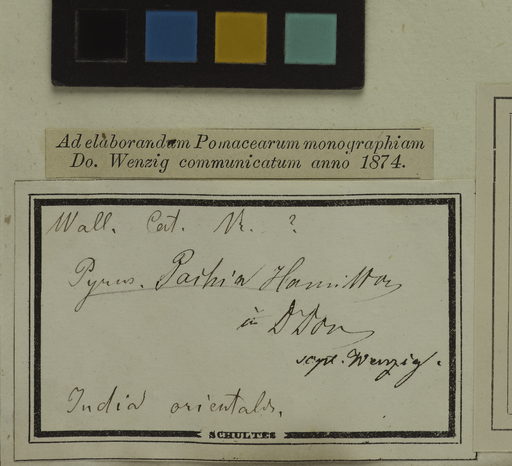 Ad elaborandam Pomacearum monographiam
Do. Wenzig communicatum anno 1874.
Wall. Cat. Nr. ?
Pyrus. Pashia Hamilton
in D Don
scrps. Wenzig.
India orientalis.
SCHULTES